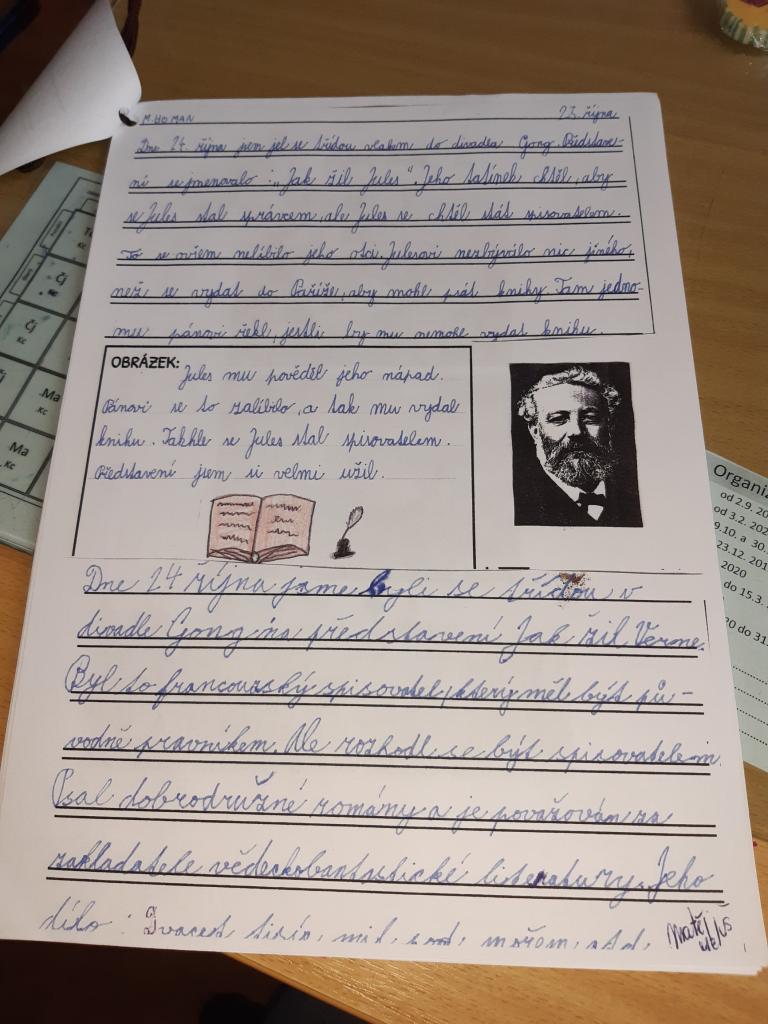 M. HOMAN
23. října
Dne 24. října jsem jel se třídou vlakem do divadla Gong. Představe-
ní se jmenovalo : „Jak žil Jules“. Jeho tatínek chtěl, aby
se Jules stal správcem, ale Jules se chtěl stát spisovatelem.
To se ovšem nelíbilo jeho otci. Julesovi nezbývalo nic jiného,
než se vydat do Paříže, aby mohl psát knihy. Tam jedno-
mu pánovi řekl, jestli by mu nemohl vydat knihu.
OBRÁZEK: Jules mu pověděl jeho nápad.
Pánovi se to zalíbilo, a tak mu vydal
knihu. Takhle se Jules stal spisovatelem.
Představení jsem si velmi užil.
Dne 24 října jsme byli se třídou v
divadle Gong na představení Jak žil Verne.
Byl to francouzský spisovatel, který měl být pů-
vodně pravníkem. Ale rozhodl se být spisovatelem.
Psal dobrodružné romány a je považován za
zakladatele vědeckobantastické literatury. Jeho
dílo : Dvacet tisíc mil pod mořem, atd.
Matě
Čj
Čj
Čj
Ma
KC
Ma
KC
Organiz
od 2.9. 20
od 3.2. 202
9.10. a 30.
23.12. 201
2020
do 15.3.
20 do 31.